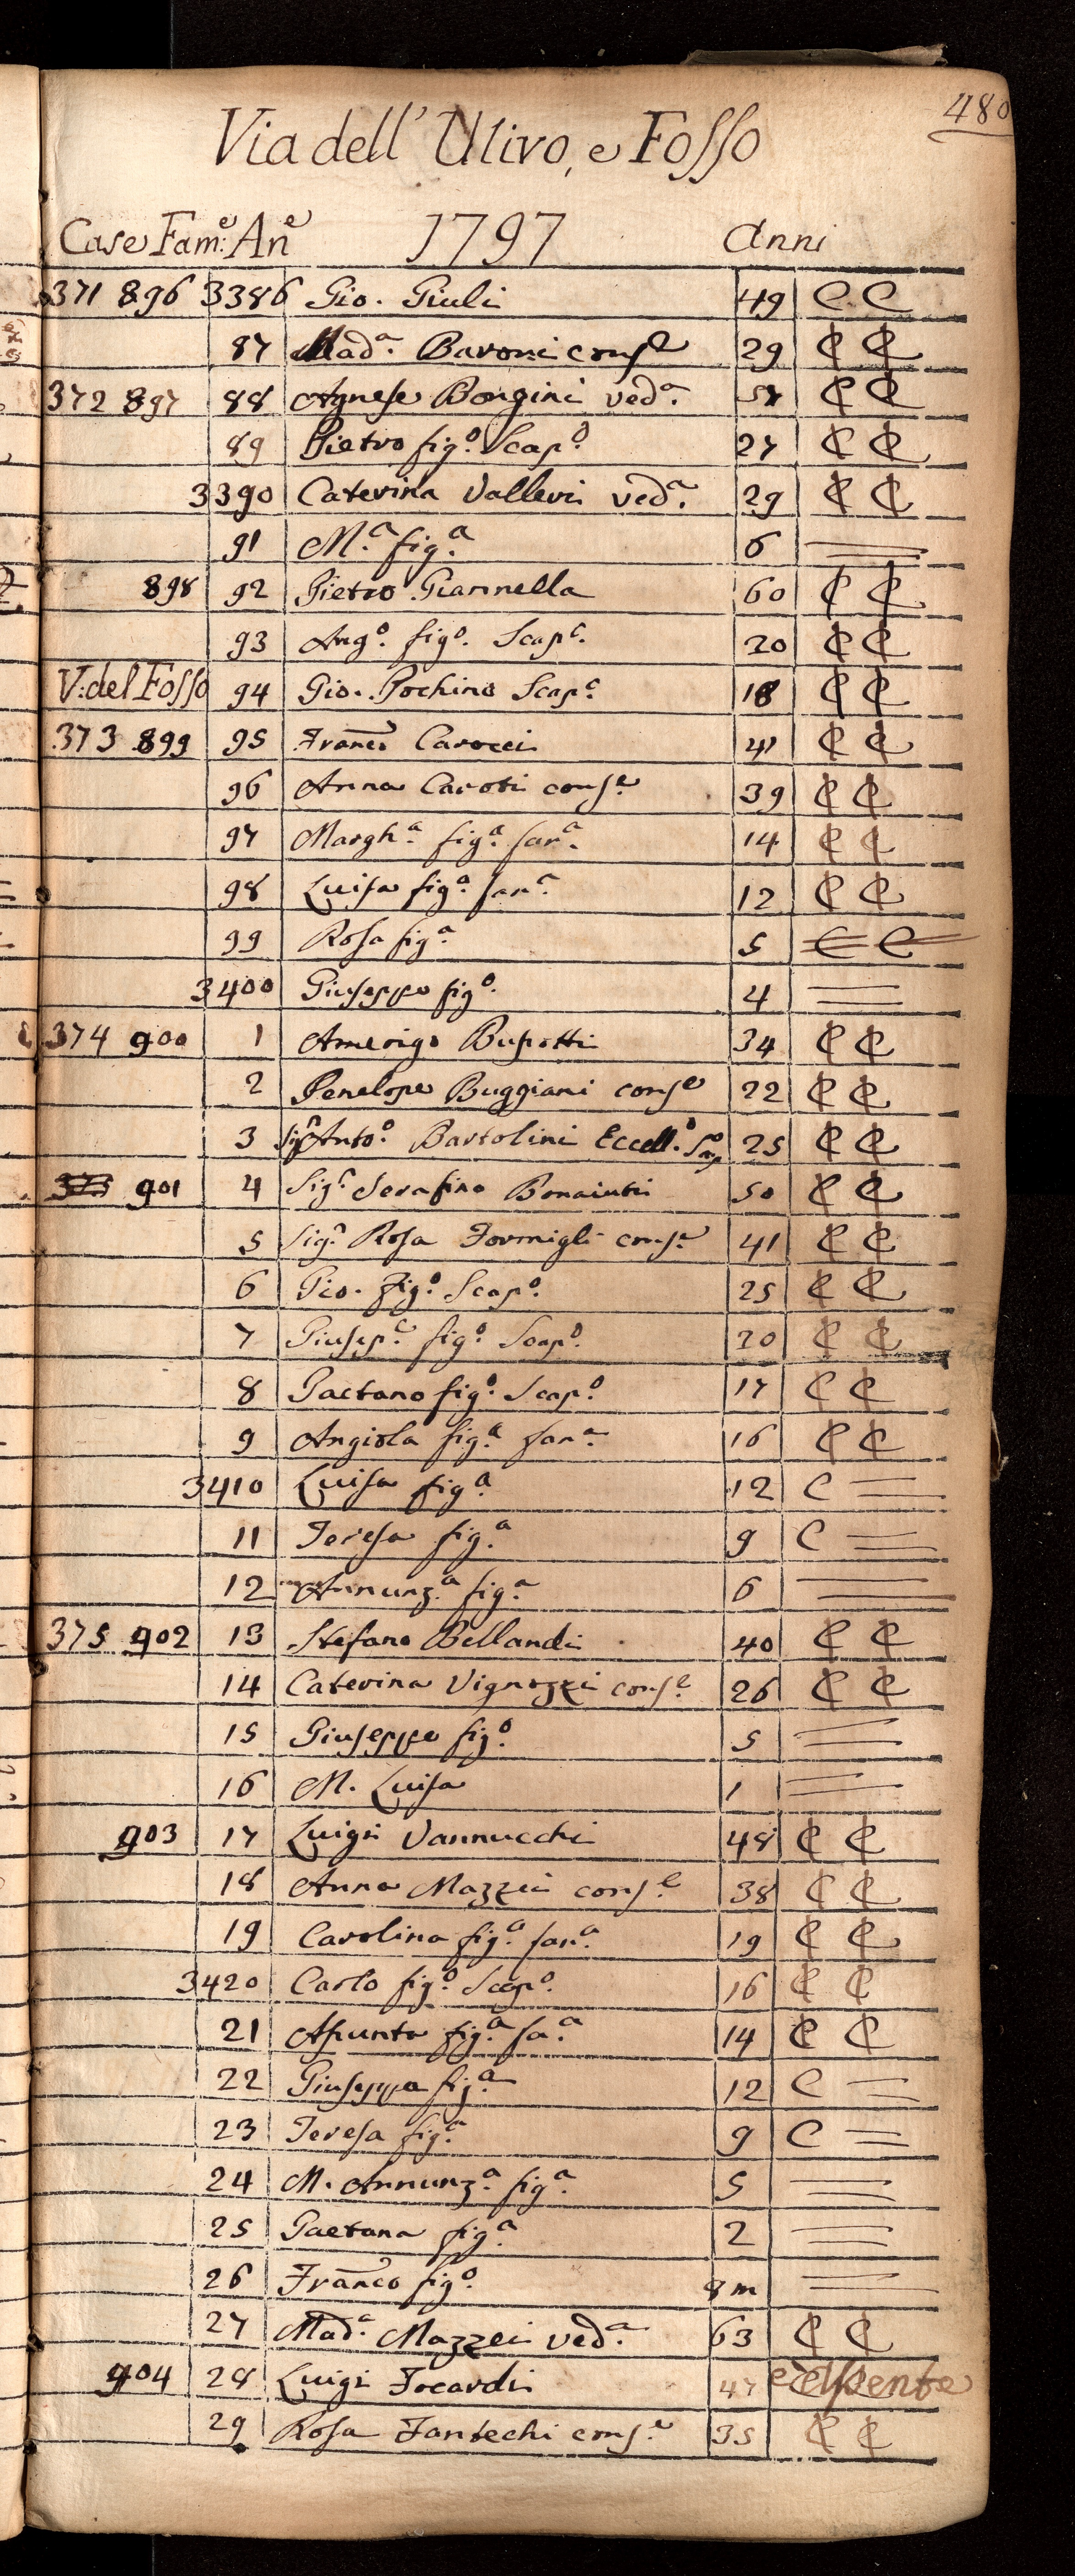 480
Via dell' Ulivo, e Fosso
Case Fam:e An.e 1797 Anni
371 896 3386 Gio. Giuli 49 C C
87 Mad.a Baroni cons.e 29 C C
372 897 88 Agnese Bongini ved.a C C
89 Pietro fig.o Scap.o 27 C C
3390 Caterina Valleri ved.a 29 C C
91 M.a fig.a 6 =
898 92 Pietro Giannella 60 C C
93 Ang.o fig.o Scap.o 20 C C
V: del Fosso 94 Gio. Pochino Scap.o 18 C C
373 899 95 Franco Carocci 41 C C
96 Anna Caroti cons.e 39 C C
97 Margh.a fig.a fan.a 14 C C
98 Luisa fig.a fan.a 12 C C
99 Rosa fig.a 5 C C
3400 Giuseppe fig.o 4 =
374 900 1 Amerigo Bupotti 34 C C
2 Penelope Buggiani cons.e 22 C C
3 Sig.r Anto.o Bartolini Eccell.o 25 C C
375 901 4 Sig.r Serafino Bonaiuti 50 C C
5 Sig.a Rosa Formigli cons.e 41 C C
6 Gio. fig.o Scap.o 25 C C
7 Giusep.e fig.o Scap.o 20 C C
8 Gaetano fig.o Scap.o 17 C C
9 Angiola fig.a fan.a 16 C C
3410 Luisa fig.a 12 C =
11 Teresa fig.a 9 C =
12 Annunz.a fig.a 6 =
375 902 13 Stefano Bellandi 40 C C
14 Caterina Vignozzi cons.e 26 C C
15 Giuseppe fig.o 5 =
16 M. Luisa 1 =
903 17 Luigi Vannucchi 48 C C
18 Anna Mazzei cons.e 38 C C
19 Carolina fig.a fan.a 19 C C
3420 Carlo fig.o Scap.o 16 C C
21 Asunta fig.a fa.a 14 C C
22 Giuseppa fig.a 12 C =
23 Teresa fig.a 9 C =
24 M. Annunz.a fig.a 5 =
25 Gaetana fig.a 2 =
26 Franco fig.o 8 m =
27 Mad.a Mazzei ved.a 63 C C
904 28 Luigi Focardi 47 è assente
29 Rosa Fantechi cons.e 35 C C